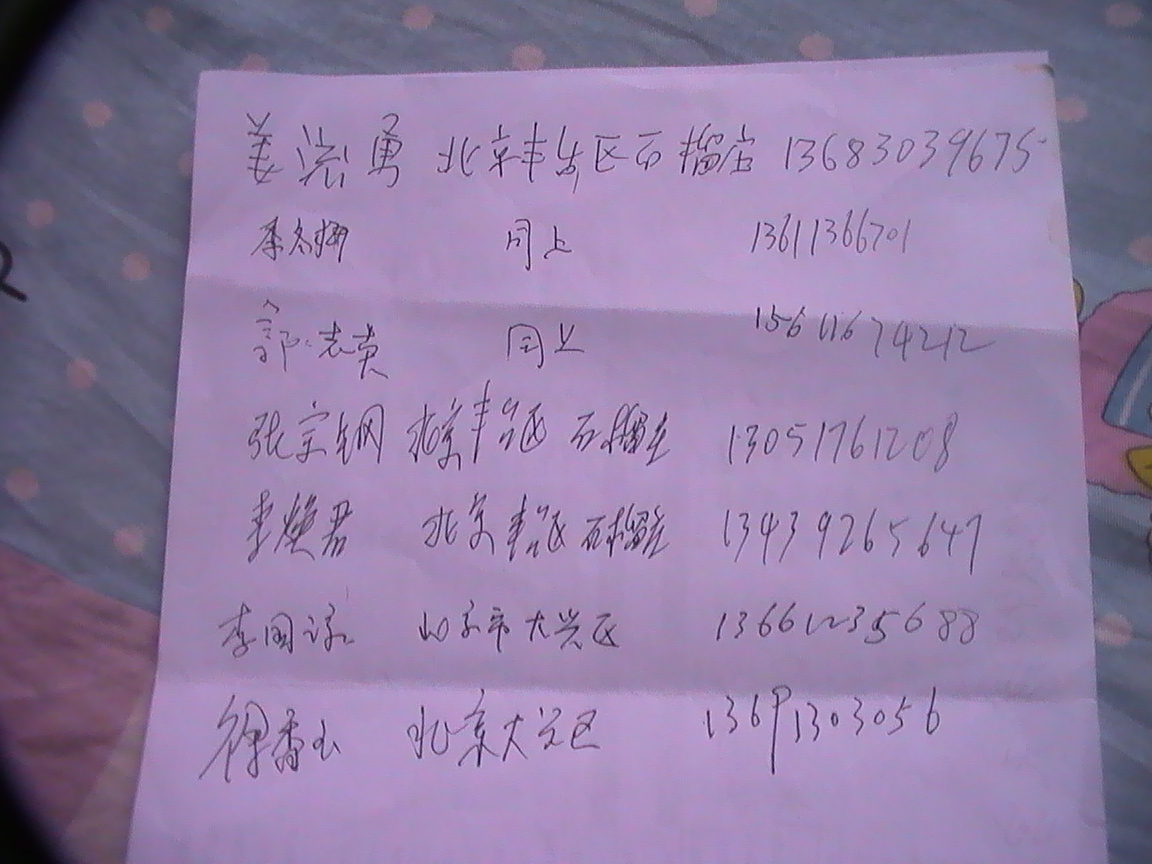 姜崇勇 北京丰台区石榴庄 13683039675
李冬梅 同上 13611366701
郭志英 同上 15611674212
张宝钢 北京丰台区 石榴庄 13051761208
李焕君 北京丰台区 石榴庄 13439265647
李国谅 北京市大兴区 13661235688
徐香玉 北京大兴区 13691303056